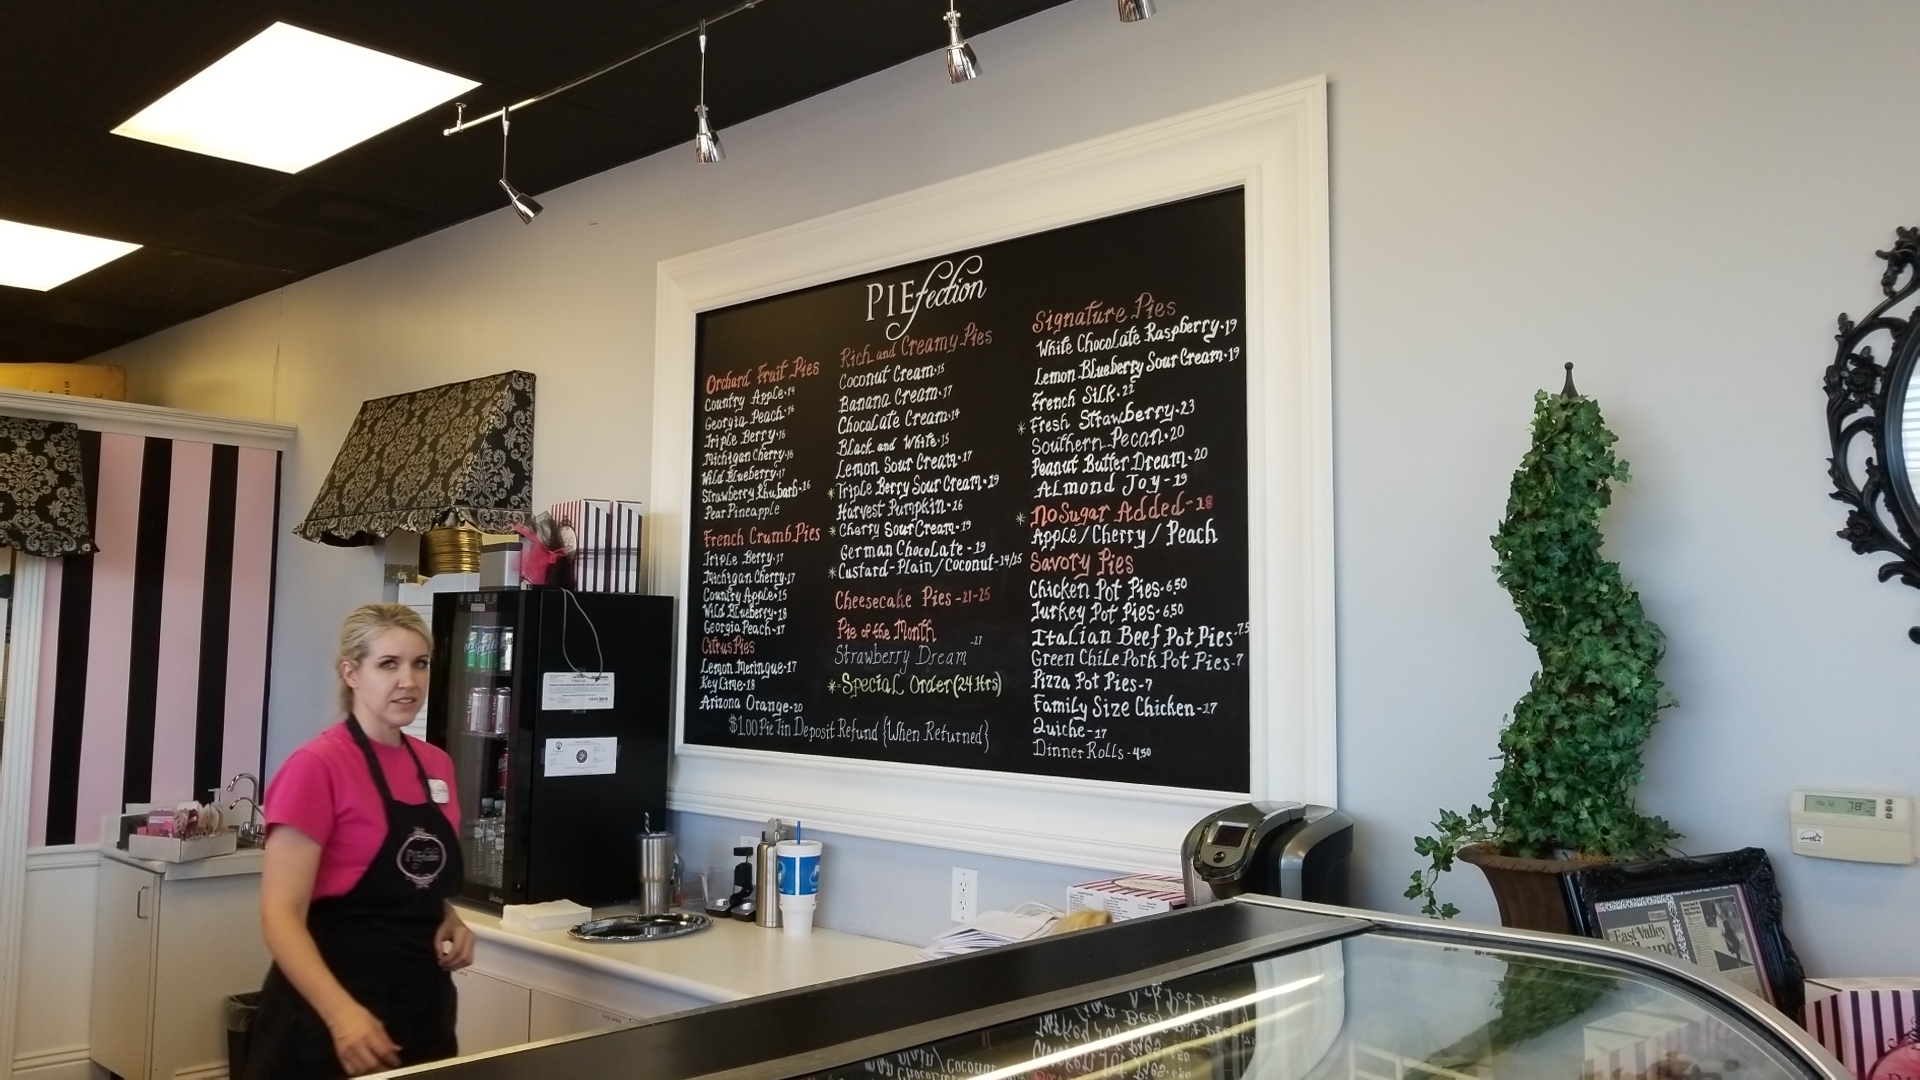 PIEfection
Orchard Fruit Pies
Country Apple-14
Georgia Peach-16
Triple Berry-16
Michigan Cherry-16
Wild Blueberry-17
Strawberry Rhubarb-16
Pear Pineapple
French Crumb Pies
Triple Berry-17
Michigan Cherry-17
Country Apple-15
Wild Blueberry-18
Georgia Peach-17
Citrus Pies
Lemon Meringue-17
Key Lime-18
Arizona Orange-20
Rich and Creamy Pies
Coconut Cream-15
Banana Cream-17
Chocolate Cream-14
Black and White-15
Lemon Sour Cream-17
*Triple Berry Sour Cream-19
Harvest Pumpkin-16
*Cherry Sour Cream-19
German Chocolate-19
*Custard-Plain/Coconut-14/15
Cheesecake Pies-21-25
Pie of the Month
Strawberry Dream -17
*-Special Order (24 Hrs)
$1.00 Pie Tin Deposit Refund {When Returned}
Signature Pies
White Chocolate Raspberry-19
Lemon Blueberry Sour Cream-19
French Silk-22
*Fresh Strawberry-23
Southern Pecan-20
Peanut Butter Dream-20
Almond Joy-19
*No Sugar Added-18
Apple/Cherry/Peach
Savory Pies
Chicken Pot Pies-6.50
Turkey Pot Pies-6.50
Italian Beef Pot Pies-7.5
Green Chile Pork Pot Pies-7
Pizza Pot Pies-7
Family Size Chicken-17
Quiche-17
Dinner Rolls-4.50
East Valley
78